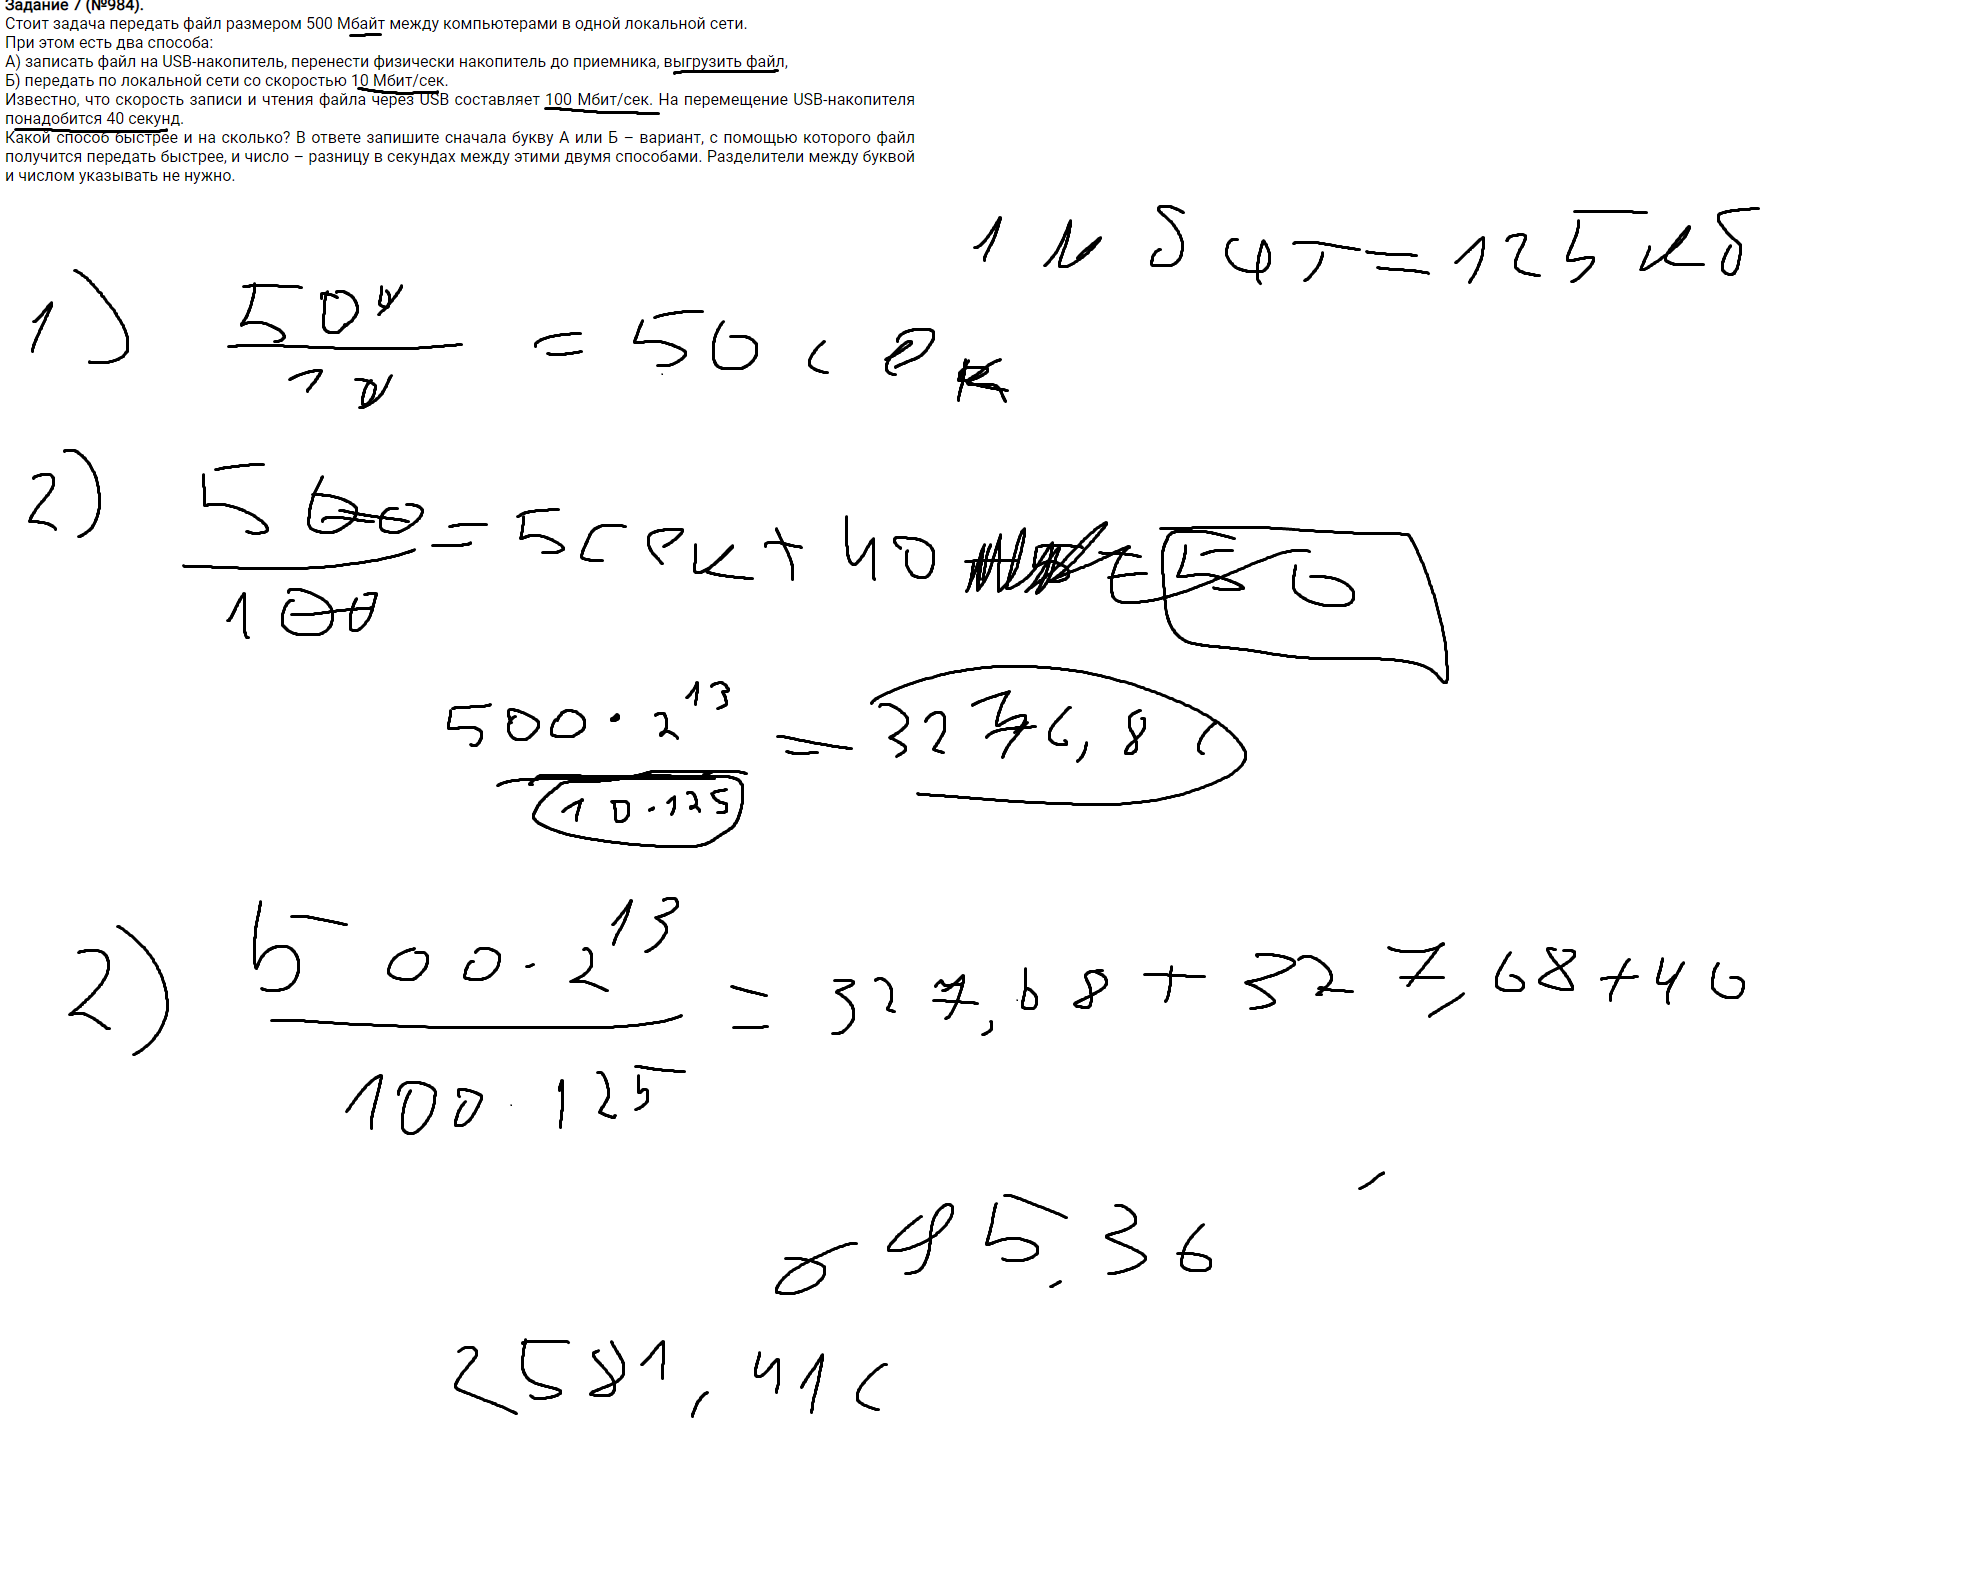 Задание 7 (№984).
Стоит задача передать файл размером 500 Мбайт между компьютерами в одной локальной сети.
При этом есть два способа:
А) записать файл на USB-накопитель, перенести физически накопитель до приемника, выгрузить файл,
Б) передать по локальной сети со скоростью 10 Мбит/сек.
Известно, что скорость записи и чтения файла через USB составляет 100 Мбит/сек. На перемещение USB-накопителя
понадобится 40 секунд.
Какой способ быстрее и на сколько? В ответе запишите сначала букву А или Б – вариант, с помощью которого файл
получится передать быстрее, и число – разницу в секундах между этими двумя способами. Разделители между буквой
и числом указывать не нужно.
1 Мбит = 125 кб
1) 500/10 = 50 сек
2) 500/100 = 5 сек + 40 = 50
500 · 2^13 / 10 · 125 = 3276,8 с
2) 500 · 2^13 / 100 · 125 = 327,68 + 327,68 + 40
695,36
2581,41 с